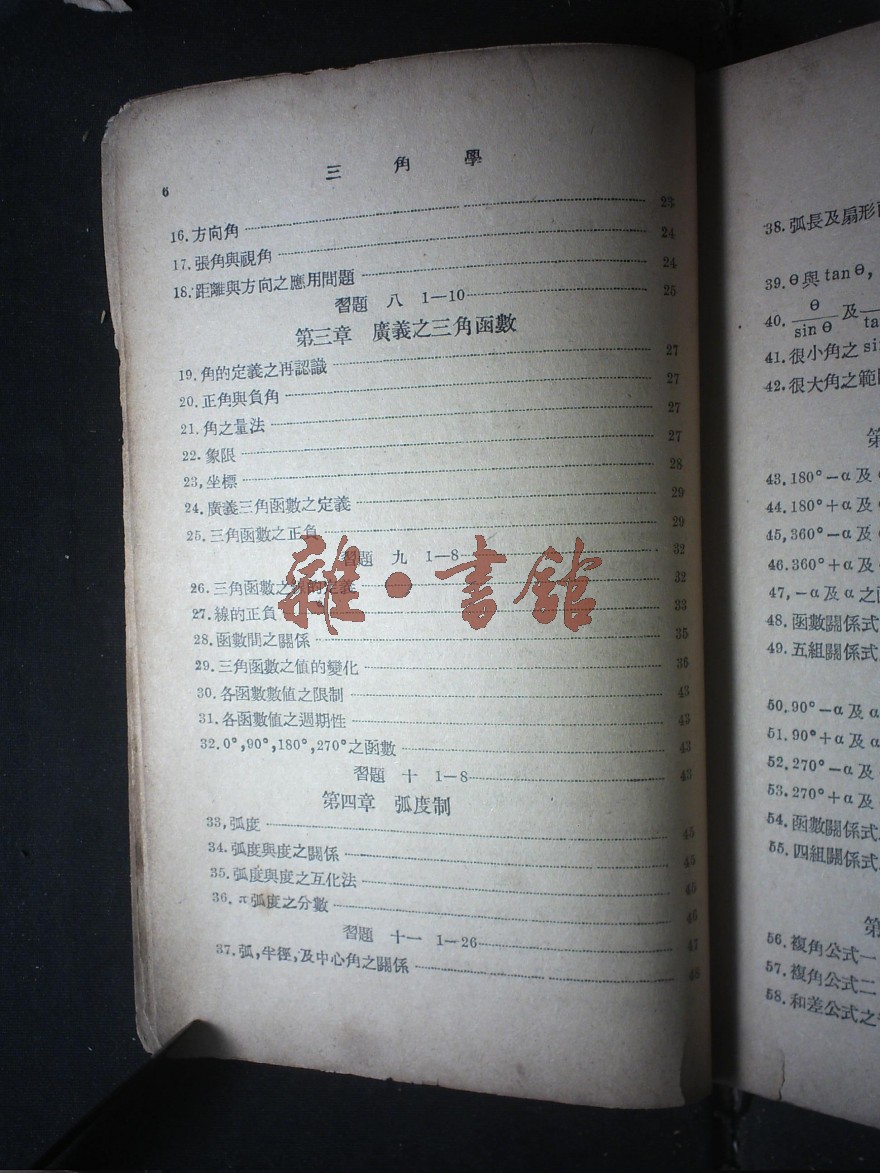 6
三角學
16.方向角 23
17.張角與視角 24
18.距離與方向之應用問題 24
習題 八 1—10 25
第三章 廣義之三角函數
19.角的定義之再認識 27
20.正角與負角 27
21.角之量法 27
22.象限 27
23,坐標 28
24.廣義三角函數之定義 29
25.三角函數之正負 29
習題 九 1—8 32
26.三角函數之線的定義 32
27.線的正負 33
28.函數間之關係 35
29.三角函數之値的變化 36
30.各函數數値之限制 43
31.各函數値之週期性 43
32.0°,90°,180°,270°之函數 43
習題 十 1—8 43
第四章 弧度制
33,弧度 45
34.弧度與度之關係 45
35.弧度與度之互化法 45
36.π弧度之分數 46
習題 十一 1—26 47
37.弧,半徑,及中心角之關係 48
雜·書館
38.弧長及扇形
39.θ與tanθ,
40. θ/sin θ 及
41.很小角之 si
42.很大角之範
第
43.180°—α及
44.180°+α及
45,360°—α及
46.360°+α及
47,—α及α之
48.函數關係式
49.五組關係式
50.90°—α及α
51.90°+α及α
52.270°—α及
53.270°+α及
54.函數關係式
55.四組關係式
第
56.複角公式一
57.複角公式二
58.和差公式之